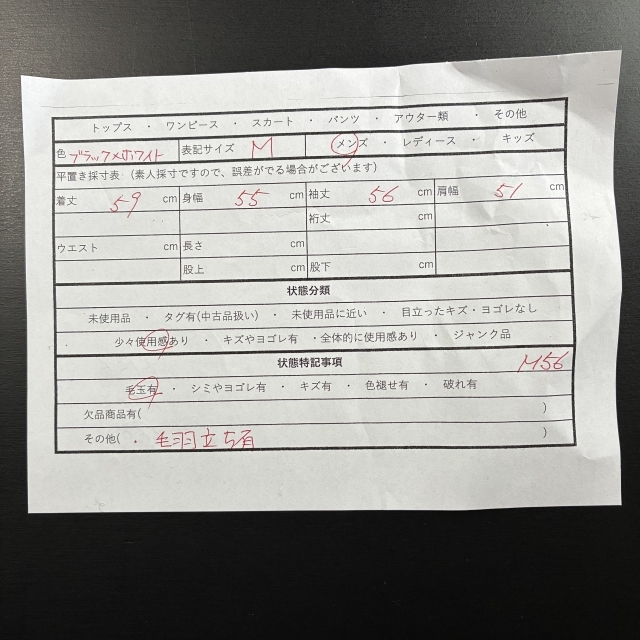 トップス ・ ワンピース ・ スカート ・ パンツ ・ アウター類 ・ その他
色 ブラック×ホワイト 表記サイズ M メンズ ・ レディース ・ キッズ
平置き採寸表 （素人採寸ですので、誤差がでる場合がございます）
着丈 59 cm 身幅 55 cm 袖丈 56 cm 肩幅 51 cm
裄丈 cm
ウエスト cm 長さ cm
股上 cm 股下 cm
状態分類
未使用品 ・ タグ有(中古品扱い) ・ 未使用品に近い ・ 目立ったキズ・ヨゴレなし
少々使用感あり ・ キズやヨゴレ有 ・全体的に使用感あり ・ ジャンク品
状態特記事項 M56
毛玉有 ・ シミやヨゴレ有 ・ キズ有 ・ 色褪せ有 ・ 破れ有
欠品商品有( )
その他( ・ 毛羽立ち有 )